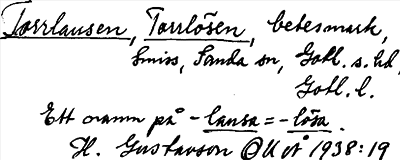 Torrlausen, Torrlösen, betesmark,
Smiss, Sanda sn, Gotl. s. hd,
Gotl. l.
Ett onamn på -lausa = -lösa.
H. Gustavson OUÅ 1938:19